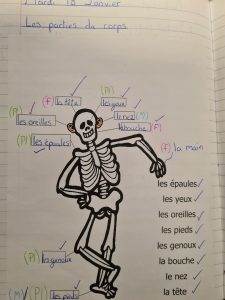 Mardi 18 Janvier
Les parties du corps
(F) la tête
(Pl) les yeux
(Pl) les oreilles
le nez (M)
la bouche (F)
(Pl) les épaules
(F) la main
les épaules
les yeux
les oreilles
les pieds
les genoux
la bouche
le nez
la tête
(Pl) les genoux
(M) (Pl) les pieds